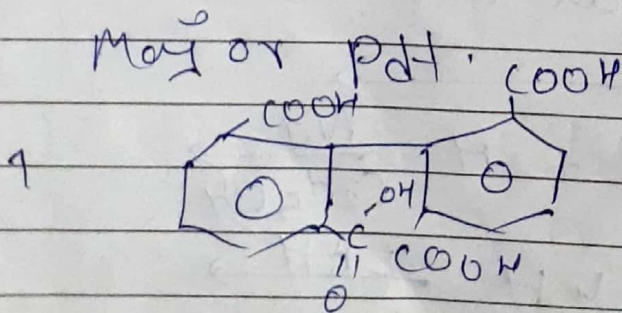 Major Pdt.
COOH
COOH
1
OH
C
COOH
O